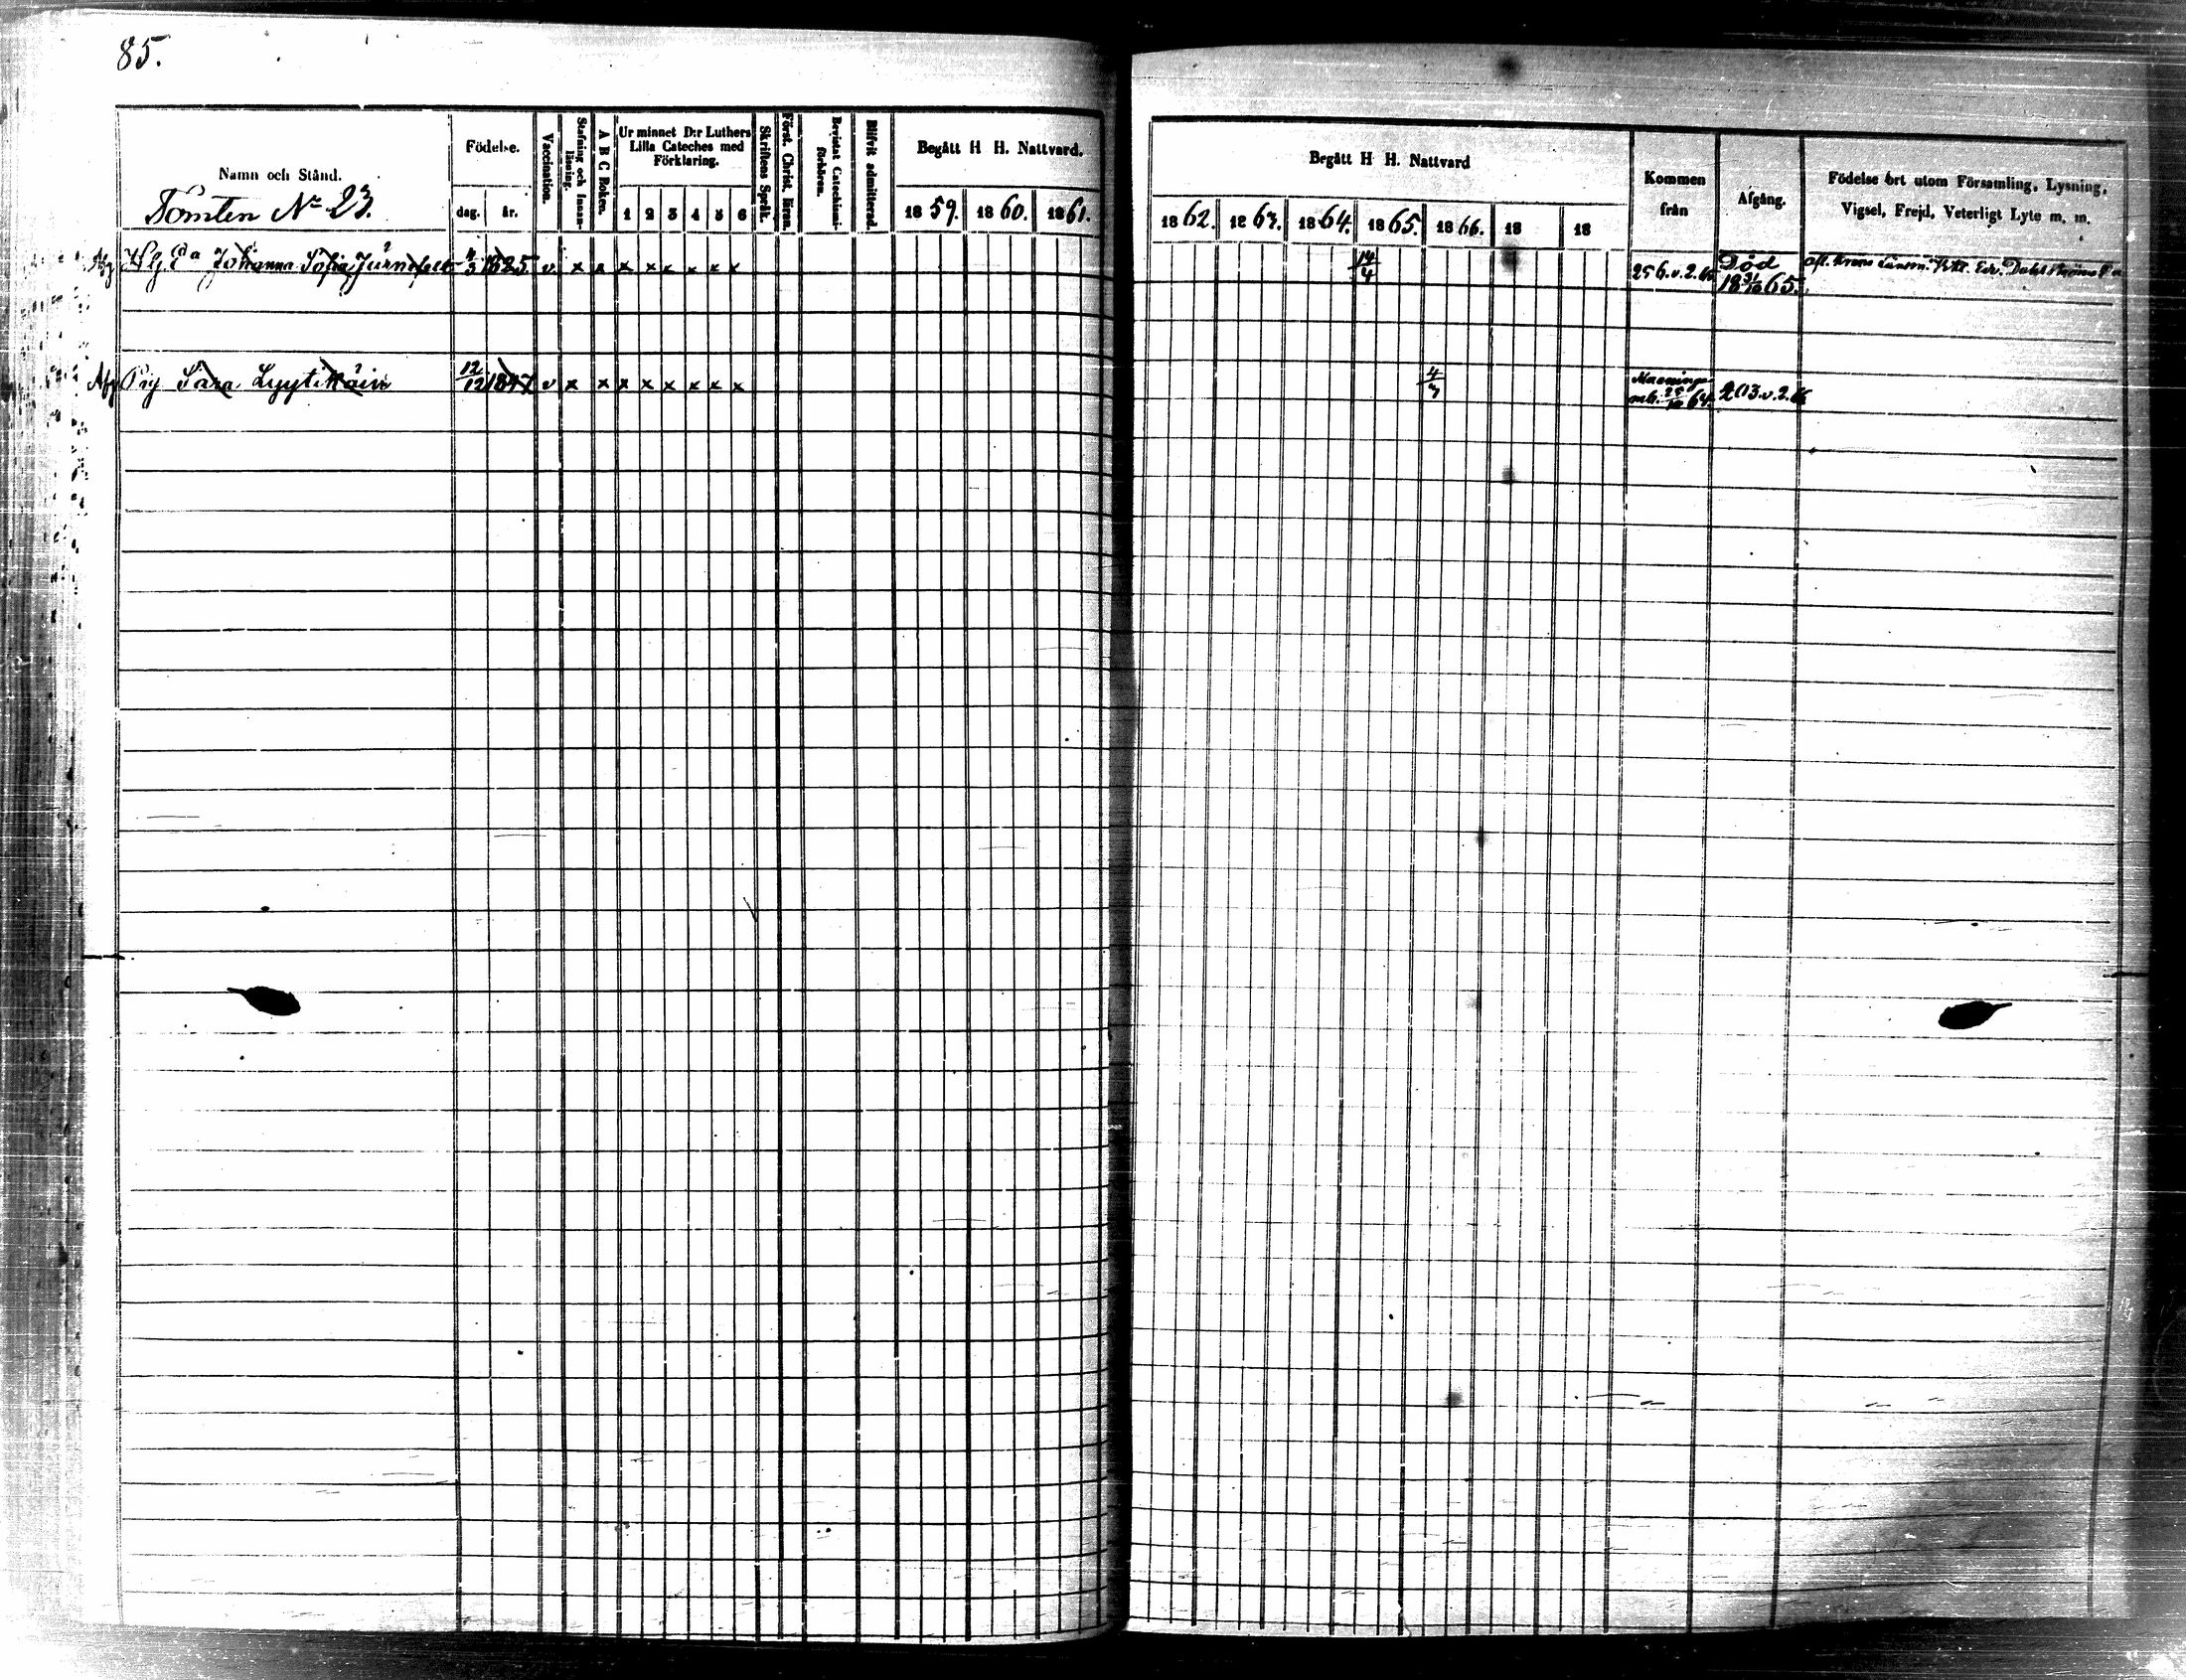 85.
Namn och Stånd.
Tomten No 23.
Födelse.
dag. år.
Vaccination.
Stafning och Innan-läsning.
A B C Boken.
Ur minnet D:r Luthers
Lilla Cateches med
Förklaring.
1 2 3 4 5 6
Skriftens Språk.
Först. Christ. läran.
Bevistat Catechismi-förhören.
Blifvit admitterad.
Begått H H. Nattvard.
1859. 1860. 1861.
Begått H H. Nattvard
1862. 1863. 1864. 1865. 1866. 18 18
Kommen
från
Afgång.
Födelse ort utom Församling, Lysning,
Vigsel, Frejd, Veterligt Lyte m. m.
Johanna Sofia Jurnefelt 4/3 1825 v x x x x x x x x 14/4 256.v.2.65 Död
18 31/10 65.
Afg Pig Sara Lyytikäin 12/12 1847 v x x x x x x x x 4/7 64. 203.v.2.66